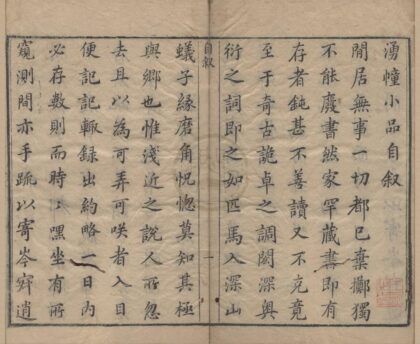 湧幢小品自叙
閒居無事一切都已棄擲獨
不能廢書然家罕藏書即有
存者鈍甚不善讀又不克竟
至于奇古詭卓之調閎深奥
衍之詞即之如匹馬入深山
蟻子緣磨角恍惚莫知其極
與鄉也惟淺近之說人所忽
去且以為可弄可咲者入目
便記記輙録出約略一日內
必存數則而時一嘿坐有所
窺測間亦手疏以寄岑寂逍
自叙
一